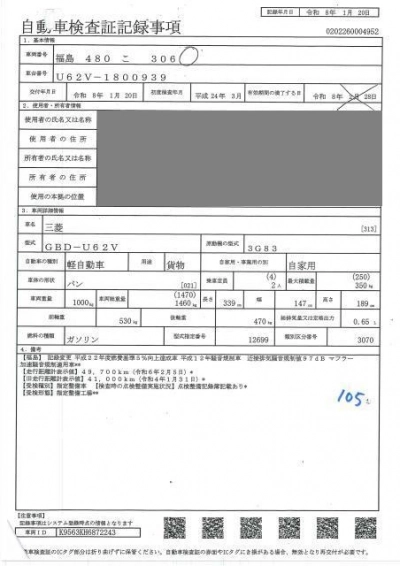 記録年月日 令和 8年 1月 20日
自動車検査証記録事項
0202260004952
1. 基本情報
車両番号 福島 480 こ 306
車台番号 U62V-1800939
交付年月日 令和 8年 1月 20日 初度検査年月 平成 24年 3月 有効期間の満了する日 令和 8年 2月 28日
2. 使用者・所有者情報
使用者の氏名又は名称
使用者の住所
所有者の氏名又は名称
所有者の住所
使用の本拠の位置
3. 車両詳細情報
車名 三菱 [313]
型式 GBD-U62V 原動機の型式 3G83
自動車の種別 軽自動車 用途 貨物 自家用・事業用の別 自家用
車体の形状 バン [021] 乗車定員 (4) 2人 最大積載量 (250) 350kg
車両重量 1000kg 車両総重量 (1470) 1460kg 長さ 339cm 幅 147cm 高さ 189cm
前軸重 530kg 後軸重 470kg 総排気量又は定格出力 0.65L
燃料の種類 ガソリン 型式指定番号 12699 類別区分番号 3070
4. 備考
【福島】 記録変更 平成22年度燃費基準5%向上達成車 平成12年騒音規制車 近接排気騒音規制値97dB マフラー
加速騒音規制適用車**
【走行距離計表示値】49,700km(令和6年2月3日)*
【旧走行距離計表示値】41,000km(令和4年1月31日)*
【受検種別】指定整備車 【検査時の点検整備実施状況】点検整備記録簿記載あり*
【受検形態】指定整備工場**
105
【注意事項】
記録事項はシステム登録時点の情報となります
車両ID K9563KH6872243